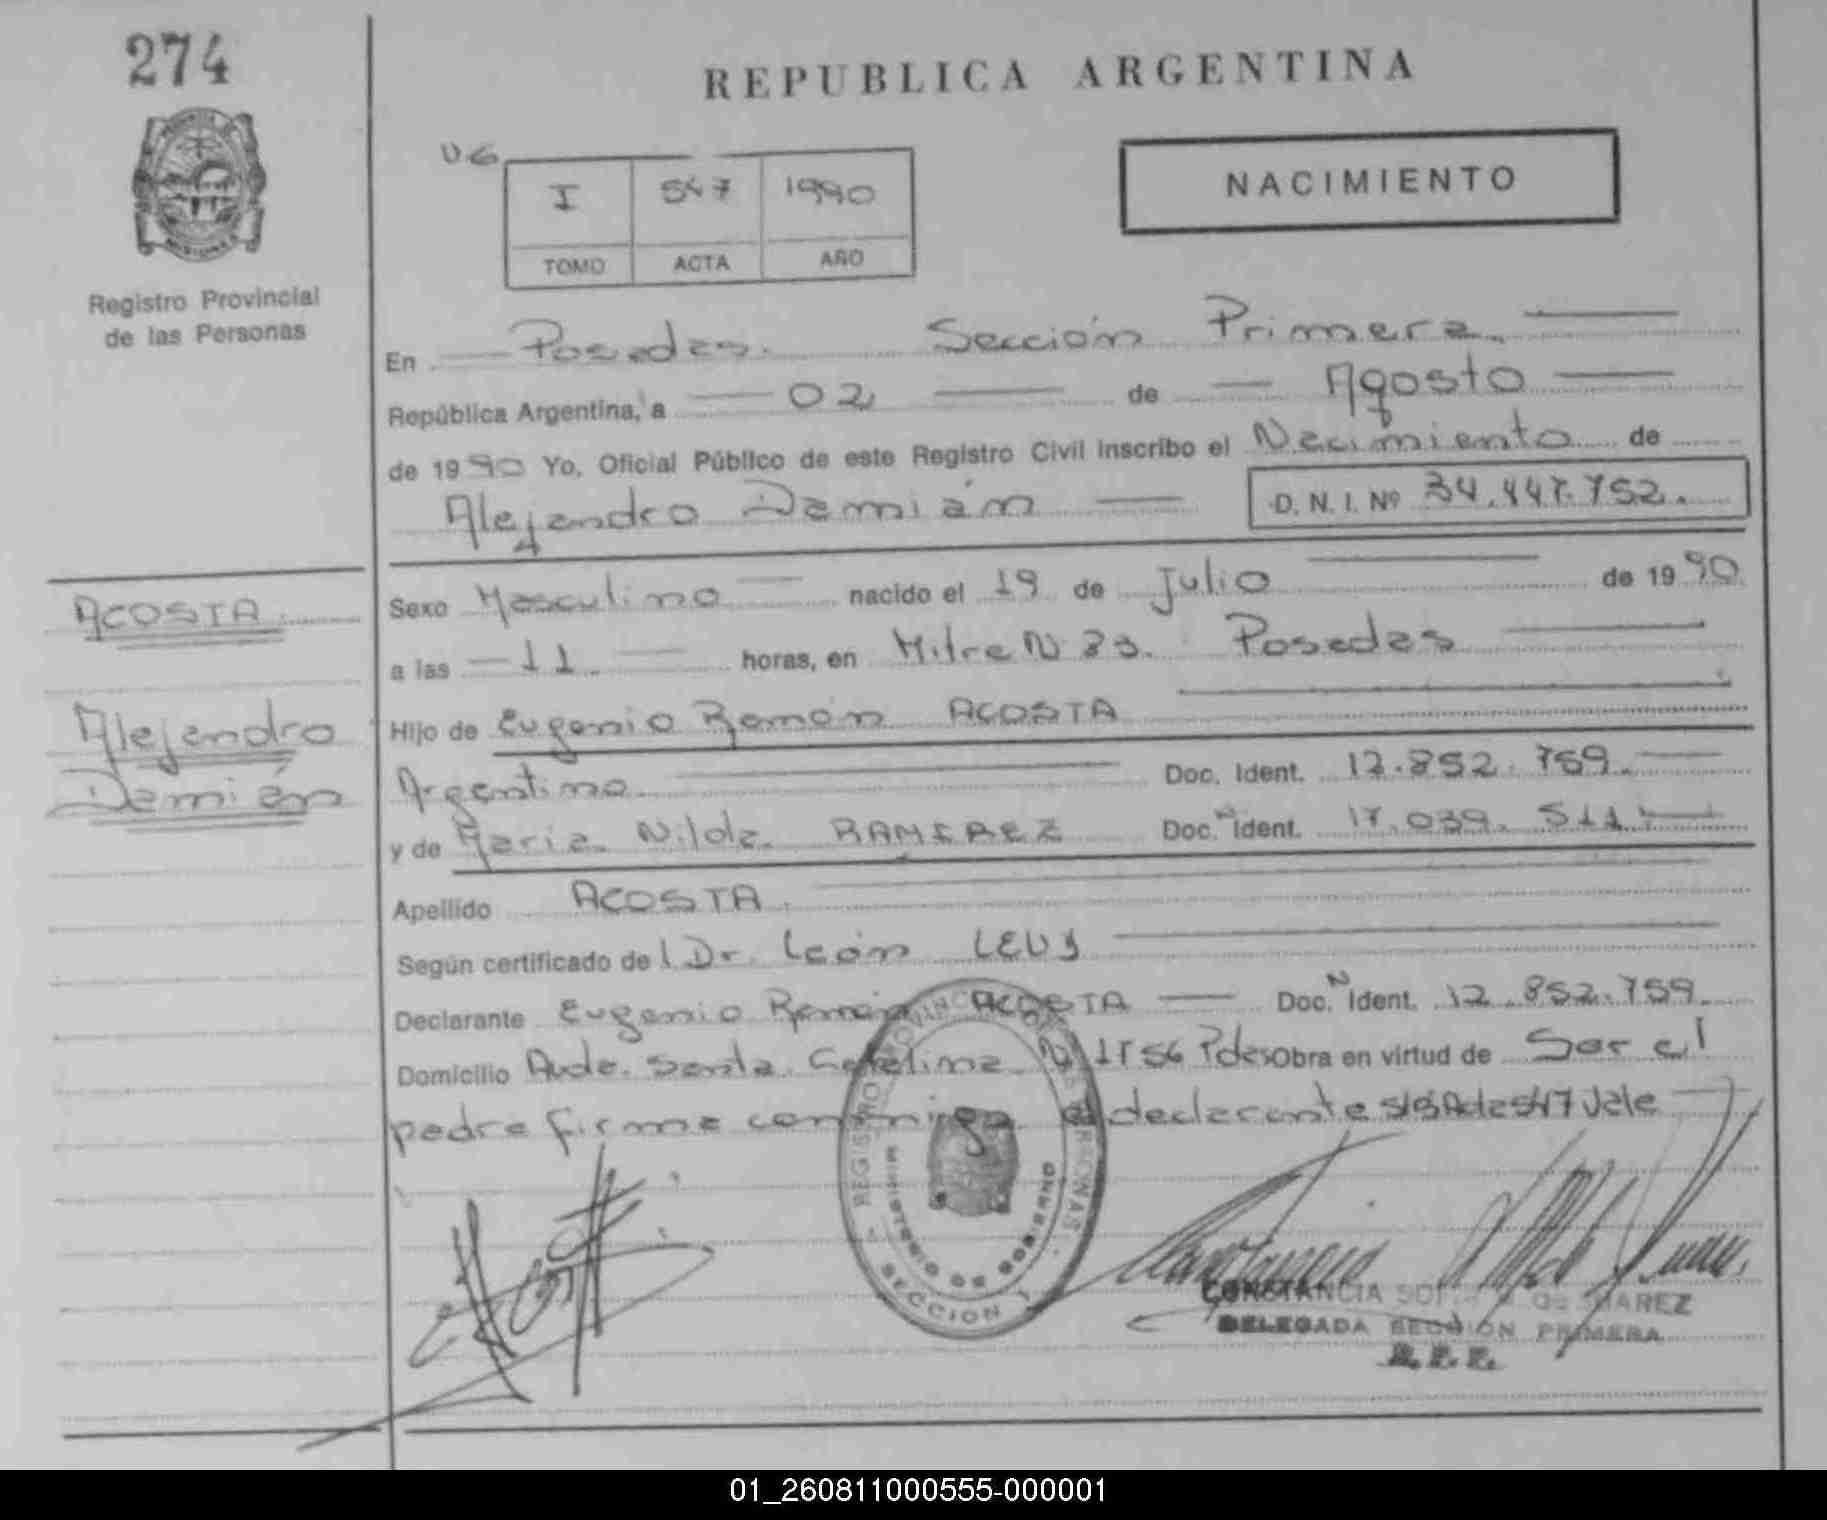 274
REPUBLICA ARGENTINA
I 547 1990
TOMO ACTA AÑO
NACIMIENTO
Registro Provincial
de las Personas
En Posadas. Sección Primera.
República Argentina, a 02 de Agosto
de 1990 Yo, Oficial Público de este Registro Civil inscribo el Nacimiento de
Alejandro Damián D. N. I. Nº 34.447.752.
ACOSTA
Alejandro
Damián
Sexo Masculino nacido el 19 de Julio de 1990
a las 11. horas, en Mitre N 83. Posadas
Hijo de Eugenio Ramón ACOSTA
Argentino Doc. Ident. 12.852.759.
y de María Nilda RAMIREZ Doc. N Ident. 17.039.511.
Apellido ACOSTA
Según certificado del Dr. León LEVY
Declarante Eugenio Ramón ACOSTA Doc. N Ident. 12.852.759.
Domicilio Avda. Santa Catalina N 1756 Pdas obra en virtud de Ser el
padre firma conmigo el declarante Vale
REGISTRO PROVINCIAL DE LAS PERSONAS
MINISTERIO DE GOBIERNO
SECCION 1
CONSTANCIA de SUAREZ
DELEGADA SECCION PRIMERA
01_260811000555-000001